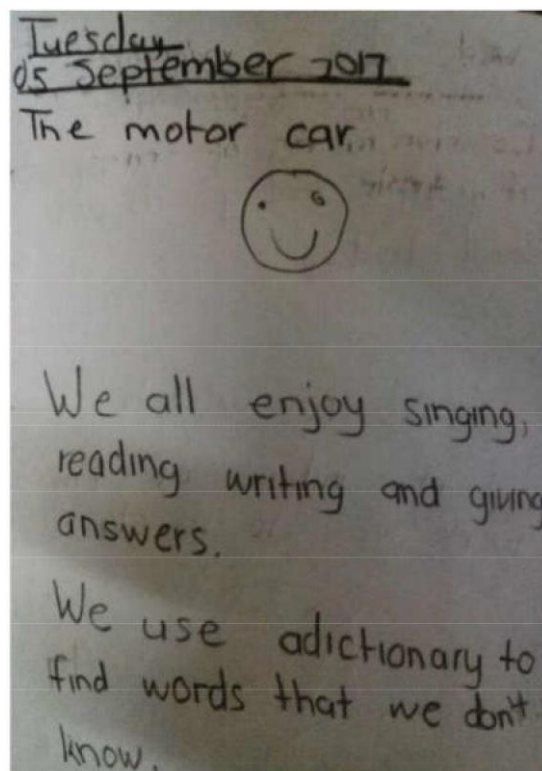 Tuesday
05 September 2017
The motor car
We all enjoy singing,
reading writing and giving
answers.
We use adictionary to
find words that we don't
know.